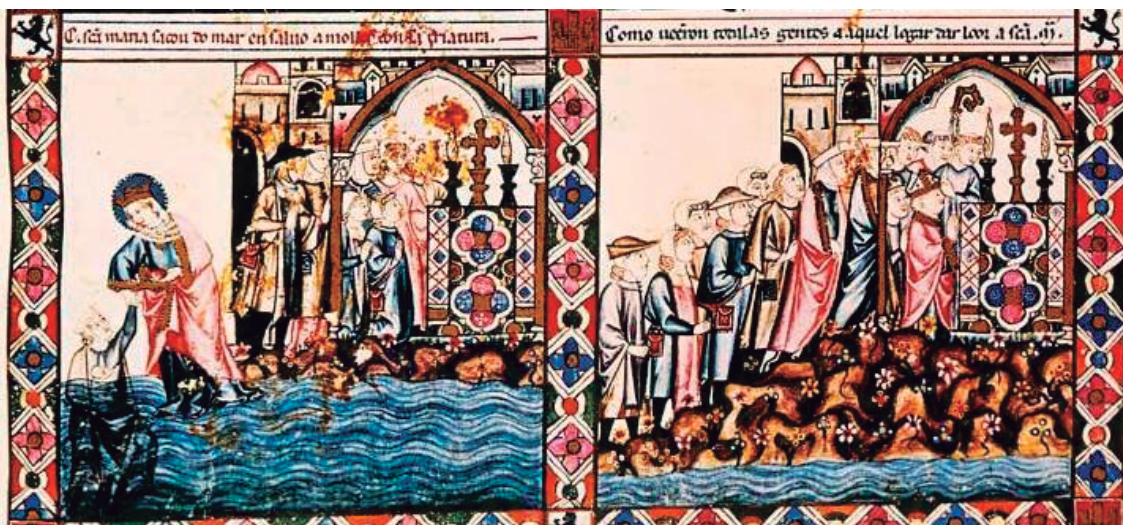 C. scã maria sacou do mar en saluo a criatura.
Como ueẽron todalas gentes a aquel logar dar loor a scã. m̃.